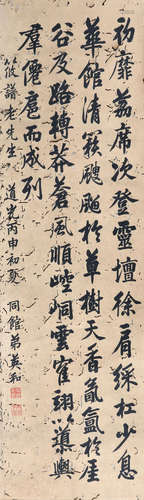 初靡荔席次登靈壇徐肩綵杠少息
華館清籟颸颸於草樹天香氤氳於崖
谷及路轉莽蒼風順崆峒雲寉翊以導輿
羣僊扈而成列
筱譜老先生
道光丙申初夏
同館弟英和